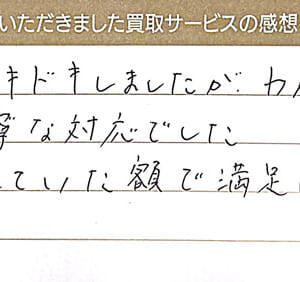 いただきました買取サービスの感想
キドキしましたが、わ
寧な対応でした
ていた額で満足